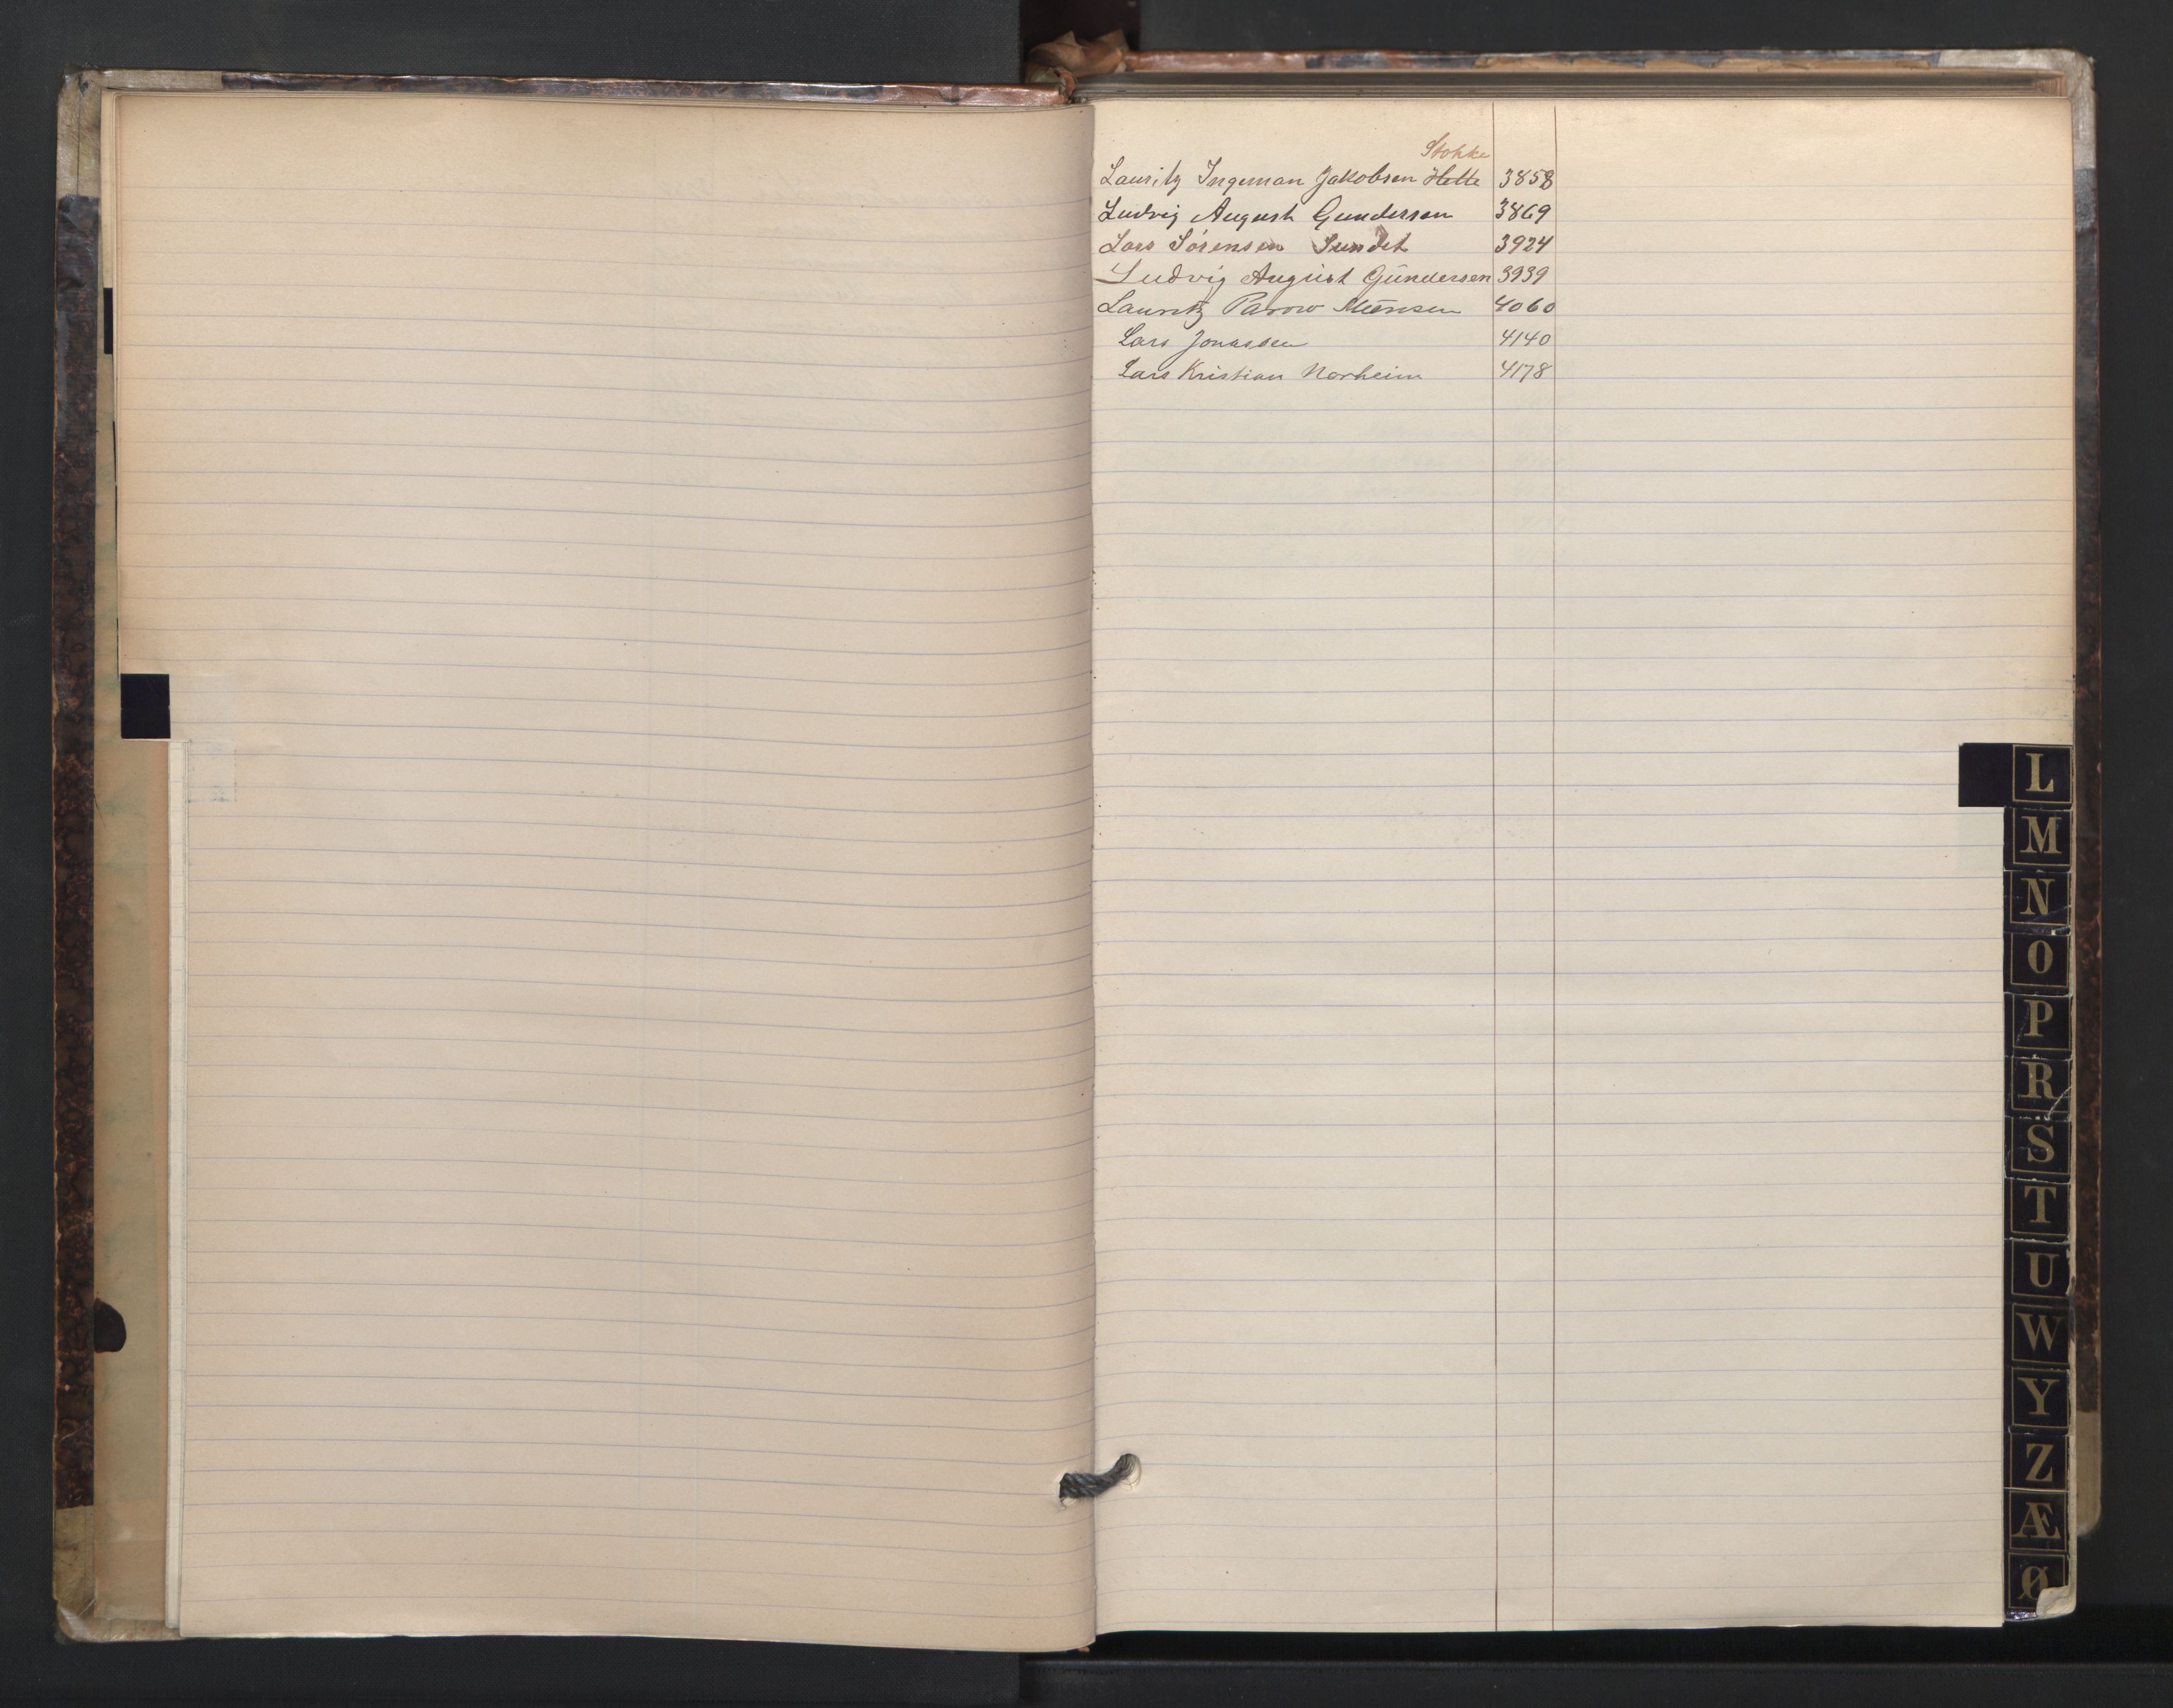 Stokke
Lauritz Ingeman Jakobsen Hette 3858
Ludvig August Gundersen 3869
Lars Sørensen Sundet 3924
Ludvig August Gundersen 3939
Lauritz Parow 4060
Lars Jonassen 4140
Lars Kristian Norheim 4178
L
M
N
O
P
R
S
T
U
W
Y
Z
Æ
Ø